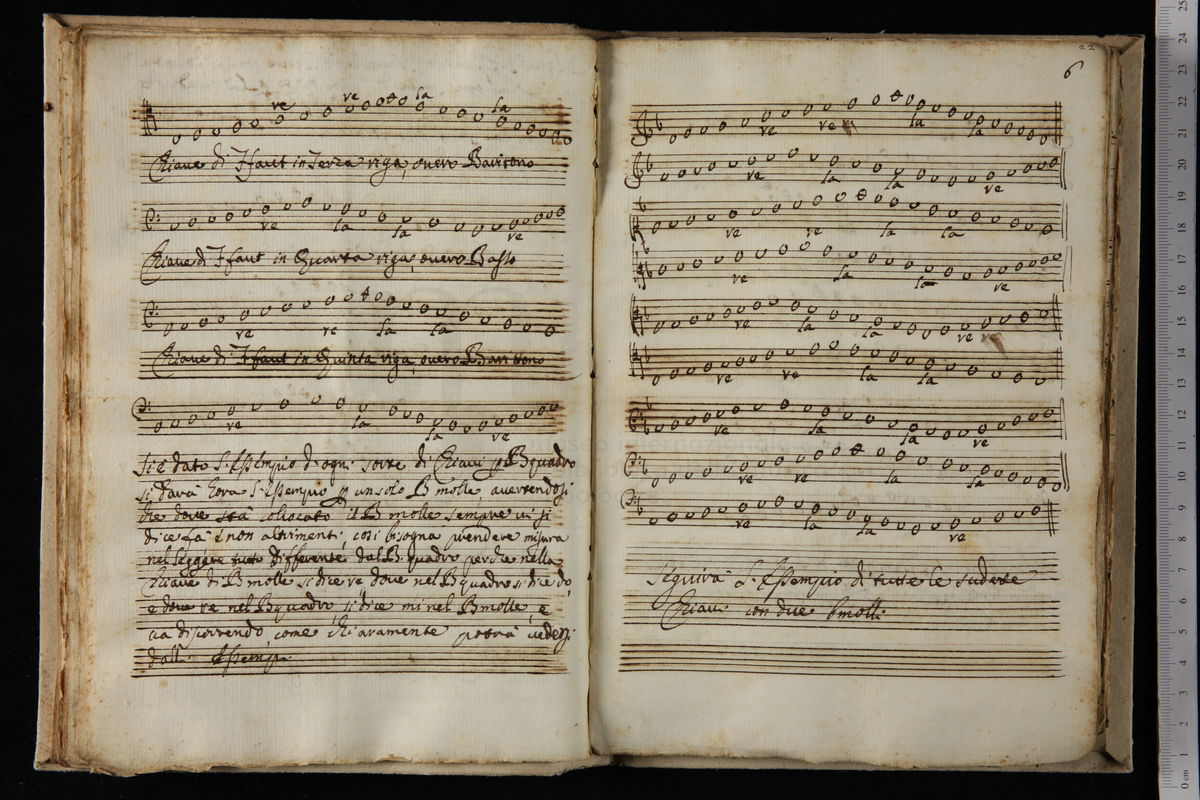 re re la la
Chiave di Ffaut in Terza riga, overo Baritono
re la la re
Chiave di Ffaut in Quarta riga, overo Basso
re re la la
Chiave di Ffaut in Quinta riga, overo Baritono
re la la re
Si è dato l'Essempio d'ogni sorte di Chiavi p Bquadro
si darà hora l'Essempio p un solo B molle, avertendosi
che dove stà collocato il B molle sempre vi si
dice fà è non altrimenti, così bisogna prendere misura
nel leggere tutto differente dal B quadro perche nella
Chiave di B molle si dice re dove nel B quadro si dice do,
e dove re nel B quadro, si dice mi nel B molle, è
via discorrendo, come chiaramente potrà vedersi
dall' Essempi.
22
6
re re la la
re la la re
re re la la
re la la re
re la la re
re re la la
re la la re
re re la la
re la la re
Seguirà l'Essempio di tutte le sudette
Chiavi con due bmolli